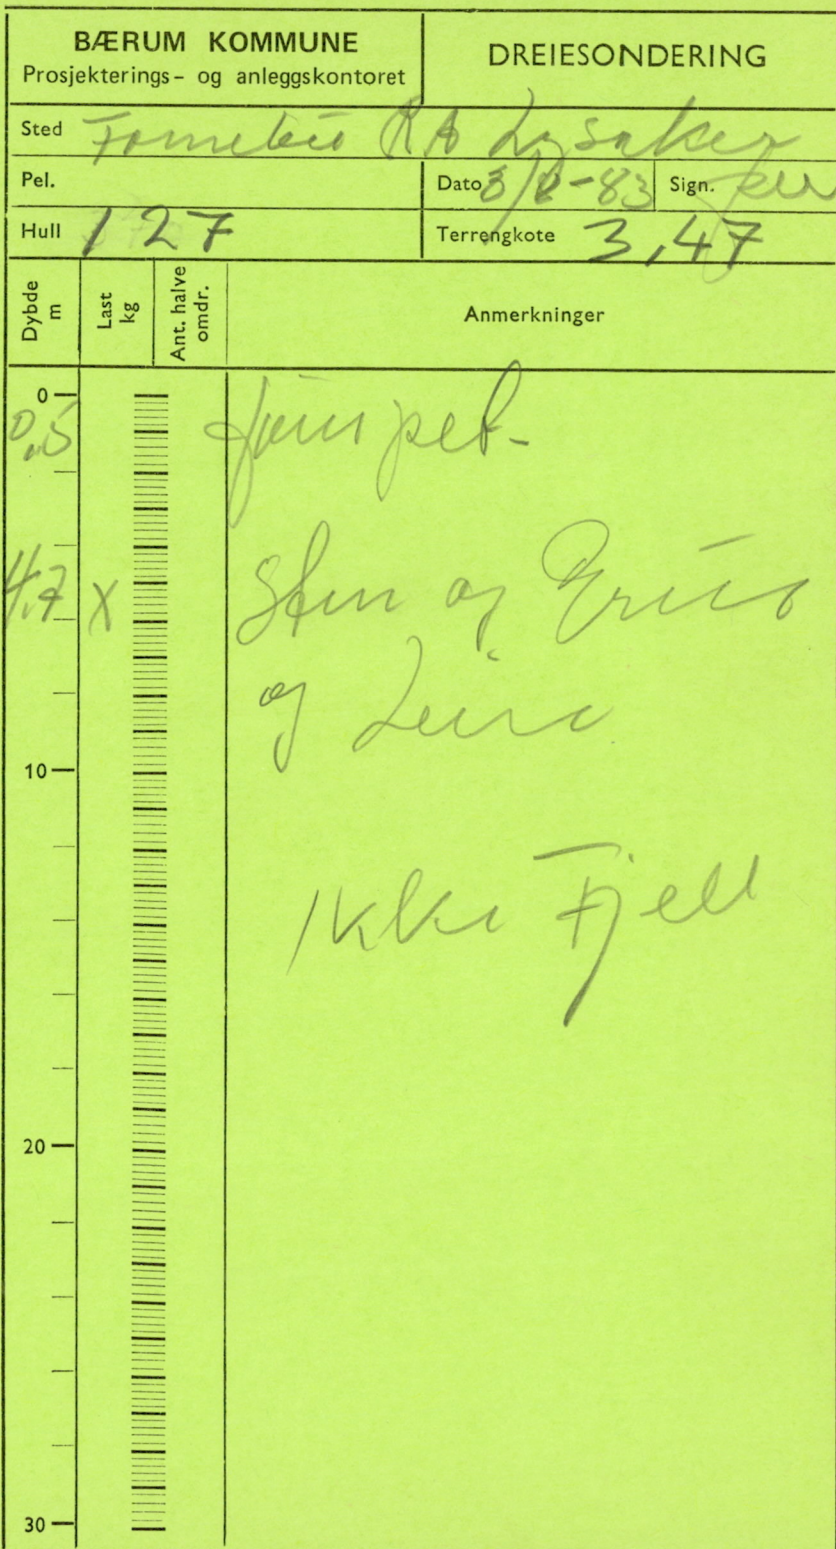 BÆRUM KOMMUNE
Prosjekterings- og anleggskontoret
DREIESONDERING
Sted Fornebu RA Lysaker
Pel.
Dato 3/ -83 Sign.
Hull 127
Terrengkote 3,47
Dybde m
Last kg
Ant. halve omdr.
Anmerkninger
0
0,5
4,7 X Sten og Grus
og Leire
10
Ikke Fjell
20
30